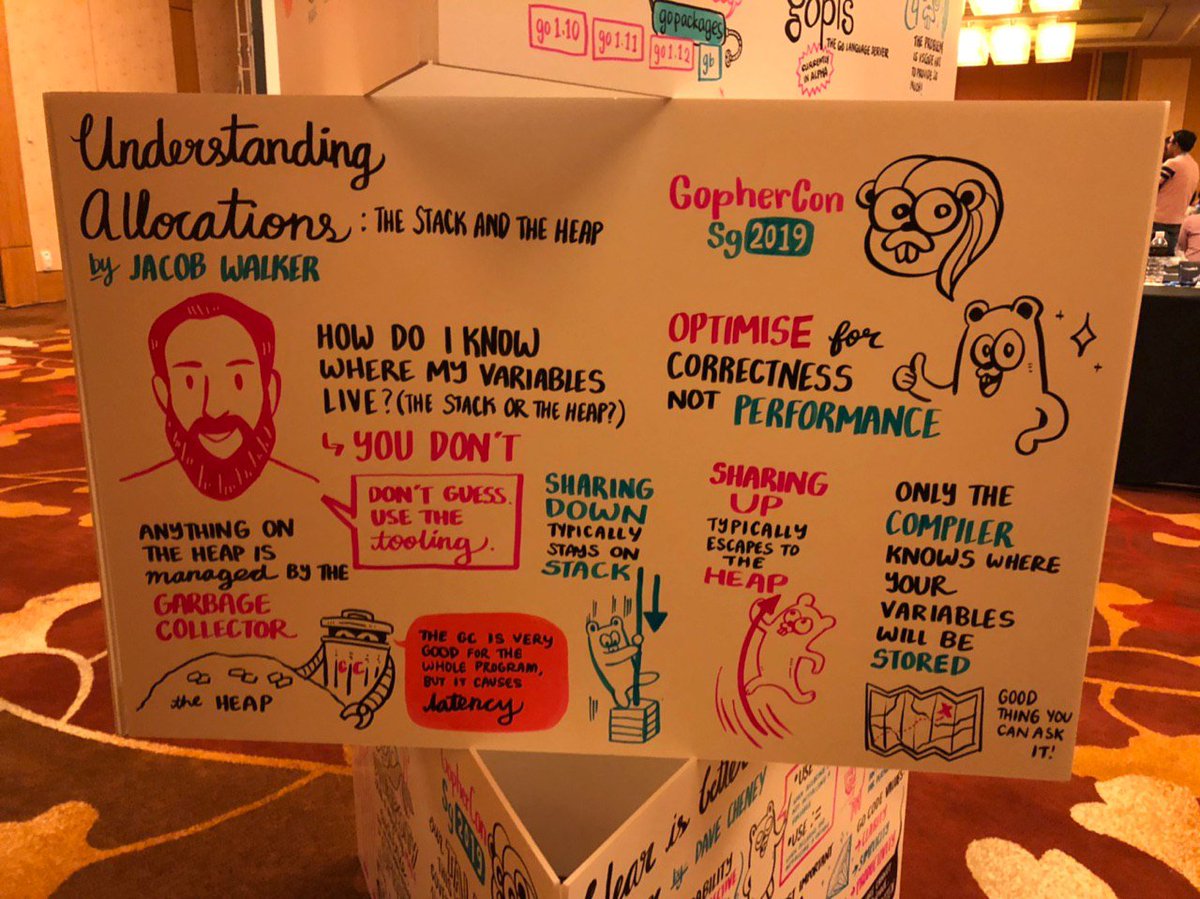 go 1.10
go 1.11
go 1.12
gopackages
gb
gopls
THE GO LANGUAGE SERVER
CURRENTLY
IN ALPHA
THE PROBLEM
MUCH!
Understanding
Allocations: THE STACK AND THE HEAP
by JACOB WALKER
GopherCon
Sg 2019
HOW DO I KNOW
WHERE MY VARIABLES
LIVE? (THE STACK OR THE HEAP?)
↳ YOU DON'T
DON'T GUESS.
USE THE
tooling.
OPTIMISE for
CORRECTNESS
NOT PERFORMANCE
ANYTHING ON
THE HEAP IS
managed BY THE
GARBAGE
COLLECTOR
the HEAP
GC
THE GC IS VERY
GOOD FOR THE
WHOLE PROGRAM,
BUT IT CAUSES
latency
SHARING
DOWN
TYPICALLY
STAYS ON
STACK
SHARING
UP
TYPICALLY
ESCAPES TO
THE
HEAP
ONLY THE
COMPILER
KNOWS WHERE
YOUR
VARIABLES
WILL BE
STORED
GOOD
THING YOU
CAN ASK
IT!
GopherCon
Sg 2019
is better
by DAVE CHENEY